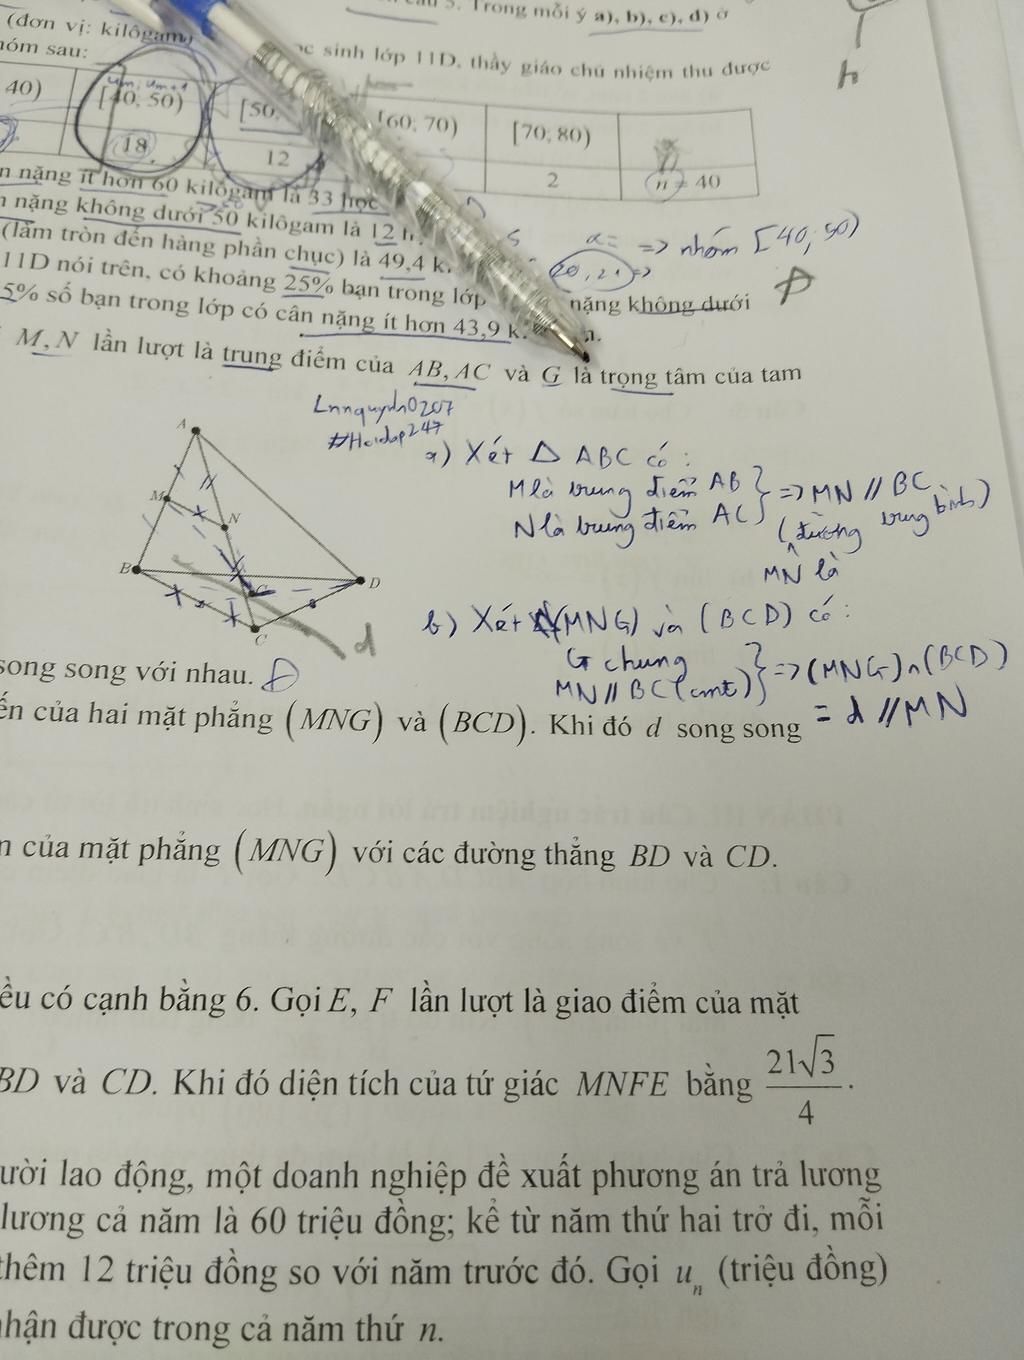 5. Trong mỗi ý a), b), c), d) ở
(đơn vị: kilôgam)
sinh lớp 11D, thầy giáo chủ nhiệm thu được
nhóm sau:
40) [40; 50) [50; [60; 70) [70; 80)
18 12 2 n = 40
nặng ít hơn 60 kilôgam là 33 học
nặng không dưới 50 kilôgam là 12
(làm tròn đến hàng phần chục) là 49,4
=> nhóm [40; 50)
11D nói trên, có khoảng 25% bạn trong lớp nặng không dưới
5% số bạn trong lớp có cân nặng ít hơn 43,9
M, N lần lượt là trung điểm của AB, AC và G là trọng tâm của tam
Lnnquynh0207
#Hoidap247
a) Xét Δ ABC có:
M là trung điểm AB
N là trung điểm AC
} => MN // BC
(đường trung bình)
MN là
A
M
N
B
D
G
C
d
b) Xét (MNG) và (BCD) có:
G chung
MN // BC (cmt)
} => (MNG) ∩ (BCD)
= d // MN
song song với nhau. Đ
của hai mặt phẳng (MNG) và (BCD). Khi đó d song song
của mặt phẳng (MNG) với các đường thẳng BD và CD.
đều có cạnh bằng 6. Gọi E, F lần lượt là giao điểm của mặt
BD và CD. Khi đó diện tích của tứ giác MNFE bằng 21√3/4.
người lao động, một doanh nghiệp đề xuất phương án trả lương
lương cả năm là 60 triệu đồng; kể từ năm thứ hai trở đi, mỗi
thêm 12 triệu đồng so với năm trước đó. Gọi uₙ (triệu đồng)
nhận được trong cả năm thứ n.